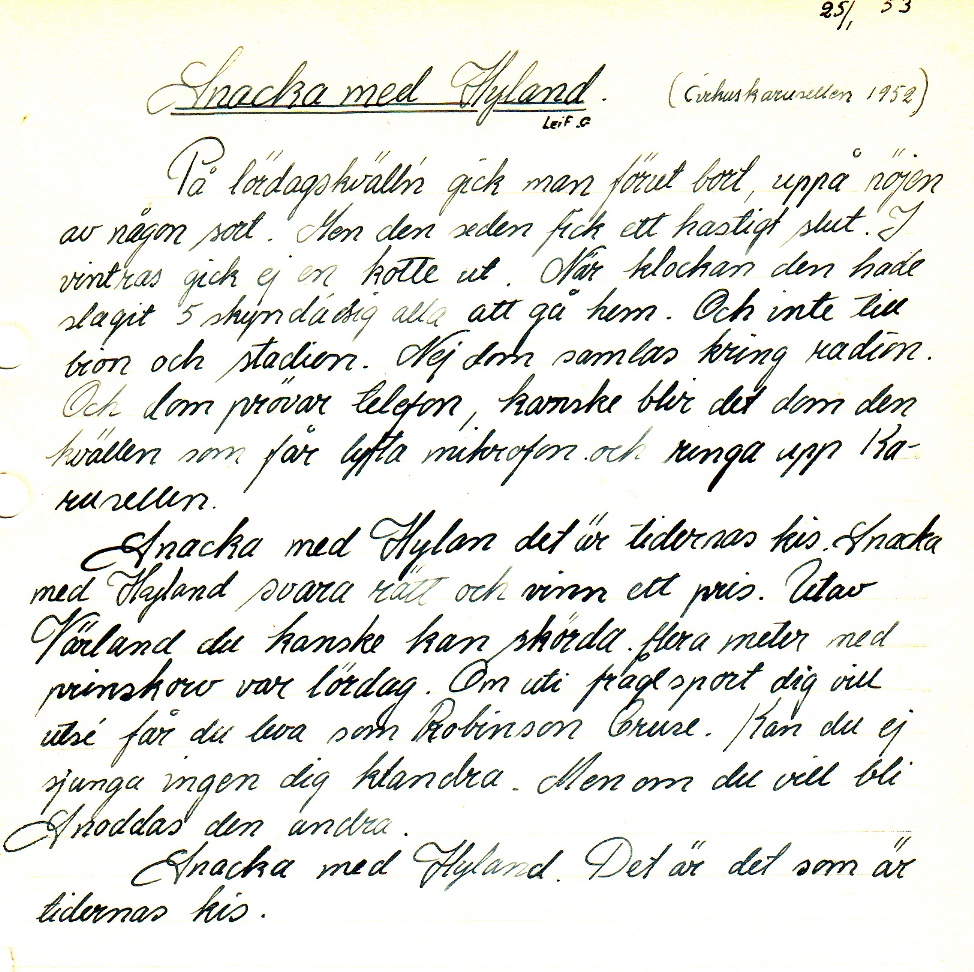 25/1 53
Snacka med Hyland. (Cirkuskarusellen 1952)
Leif .G
På lördagskvälln gick man förut bort, uppå nöjen
av någon sort. Men den seden fick ett hastigt slut. I
vintras gick ej en kotte ut. När klockan den hade
slagit 5 skyndade sig alla att gå hem. Och inte till
bion och stadion. Nej dom samlas kring radion.
Och dom prövar telefon, kanske blir det dom den
kvällen som får lyfta mikrofon och ringa upp Ka-
rusellen.
Snacka med Hylan det är tidernas kis. Snacka
med Hyland svara rätt och vinn ett pris. Utav
Värland du kanske kan skörda flera meter med
prinskorv var lördag. Om uti frågesport dig vill
utse får du leva som Robinson Cruse. Kan du ej
sjunga ingen dig klandra. Men om du vill bli
Snoddas den andra.
Snacka med Hyland. Det är det som är
tidernas kis.